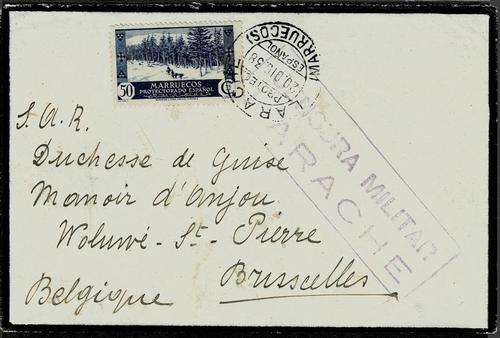 50
MARRUECOS
PROTECTORADO ESPAÑOL
LARACHE
(MARRUECOS)
ESPAÑOL
CENSURA MILITAR
LARACHE
S. A. R.
Duchesse de Guise
Manoir d'Anjou
Woluwé - St - Pierre
Brusselles
Belgique